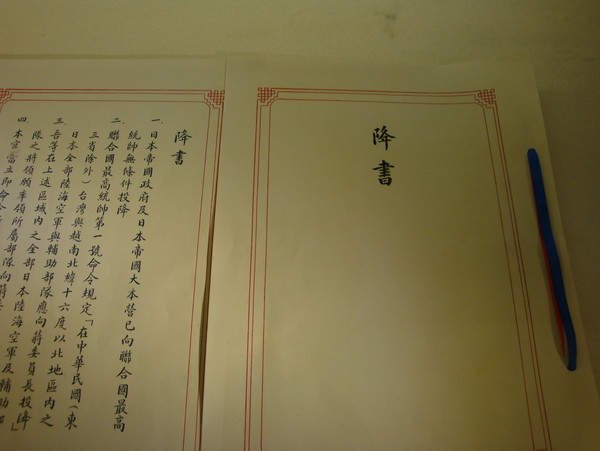 降書
降書
一、日本帝國政府及日本帝國大本營已向聯合國最高
統帥無條件投降
二、聯合國最高統帥第一號命令規定「在中華民國(東
三省除外)台灣與越南北緯十六度以北地區內之
日本全部陸海空軍與輔助部隊應向蔣委員長投降」
三、吾等在上述區域內之全部日本陸海空軍及輔助
隊之將領願率領所屬部隊向蔣
四、本官當立即命令所